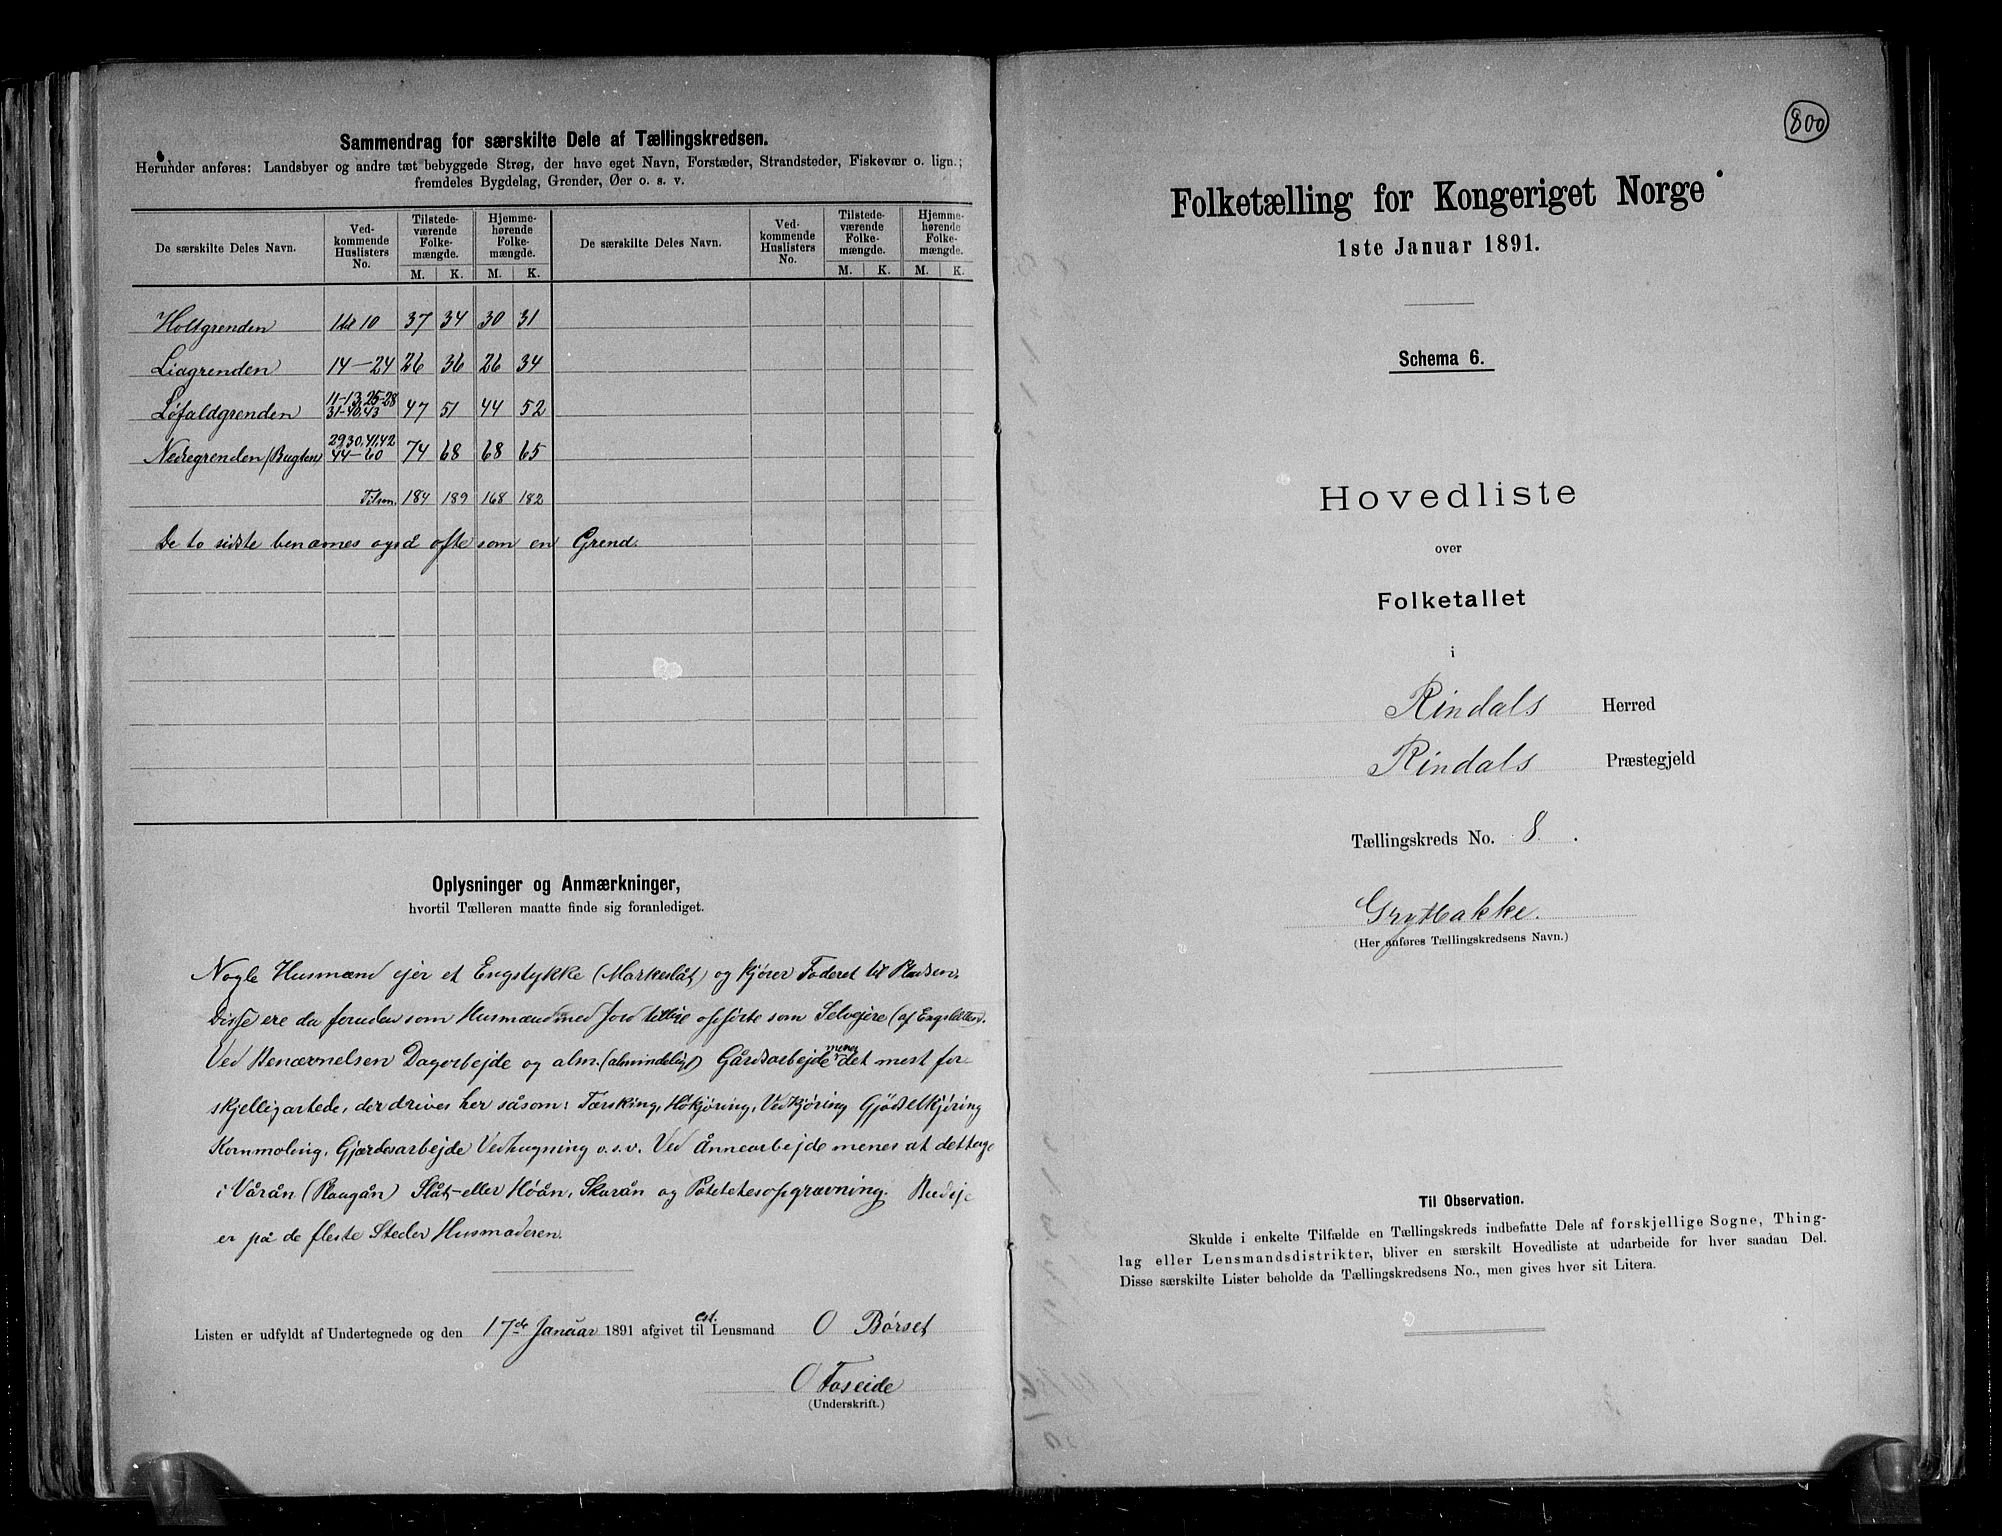 Sammendrag for særskilte Dele af Tællingskredsen.
Herunder anføres: Landsbyer og andre tæt bebyggede Strøg, der have eget Navn, Forstæder, Strandsteder, Fiskevær o. lign.;
fremdeles Bygdelag, Grender, Øer o. s. v.
De særskilte Deles Navn. Ved-kommende Huslisters No. Tilstede-værende Folke-mængde. Hjemme-hørende Folke-mængde. De særskilte Deles Navn. Ved-kommende Huslisters No. Tilstede-værende Folke-mængde. Hjemme-hørende Folke-mængde.
M. K. M. K. M. K. M. K.
Holtgrenden 1 til 10 37 34 30 31
Liagrenden 14-24 26 36 26 34
11-13, 25-28
Løfaldgrenden 31-40, 43 47 51 44 52
29,30,41,42
Nedregrenden (Bugten) 44-60 74 68 68 65
Tilsm. 184 189 168 182
De to sidste benævnes også ofte som en Grend.
Oplysninger og Anmærkninger,
hvortil Tælleren maatte finde sig foranlediget.
Nogle Husmænd ejer et Engstykke (Markeslåt) og kjører Foderet til Pladsen.
Disse ere da foruden som Husmænd med Jord tillige opførte som Selvejere (af Engsletten).
Ved Benævnelsen Dagarbejde og alm. (almindeligt) Gårdsarbejde menes det mest for-
skjelligartede, der drives her såsom: Tærsking, Høkjøring, Vedkjøring Gjødselkjøring
Kornmaling, Gjærdesarbejde Vedhugning o.s.v. Ved Ånnearbejde menes at deltage
i Vårån (Plougån) Slåt- eller Høån, Skurån og Potetesopgravning. Budeje
er på de fleste Steder Husmoderen.
Listen er udfyldt af Undertegnede og den 17de Januar 1891 afgivet til cst. Lensmand O Børset
O Foseide
(Underskrift.)
800
Folketælling for Kongeriget Norge
1ste Januar 1891.
Schema 6.
Hovedliste
over
Folketallet
i
Rindals Herred
Rindals Præstegjeld
Tællingskreds No. 8.
Grytbakke.
(Her anføres Tællingskredsens Navn.)
Til Observation.
Skulde i enkelte Tilfælde en Tællingskreds indbefatte Dele af forskjellige Sogne, Thing-
lag eller Lensmandsdistrikter, bliver en særskilt Hovedliste at udarbeide for hver saadan Del.
Disse særskilte Lister beholde da Tællingskredsens No., men gives hver sit Litera.